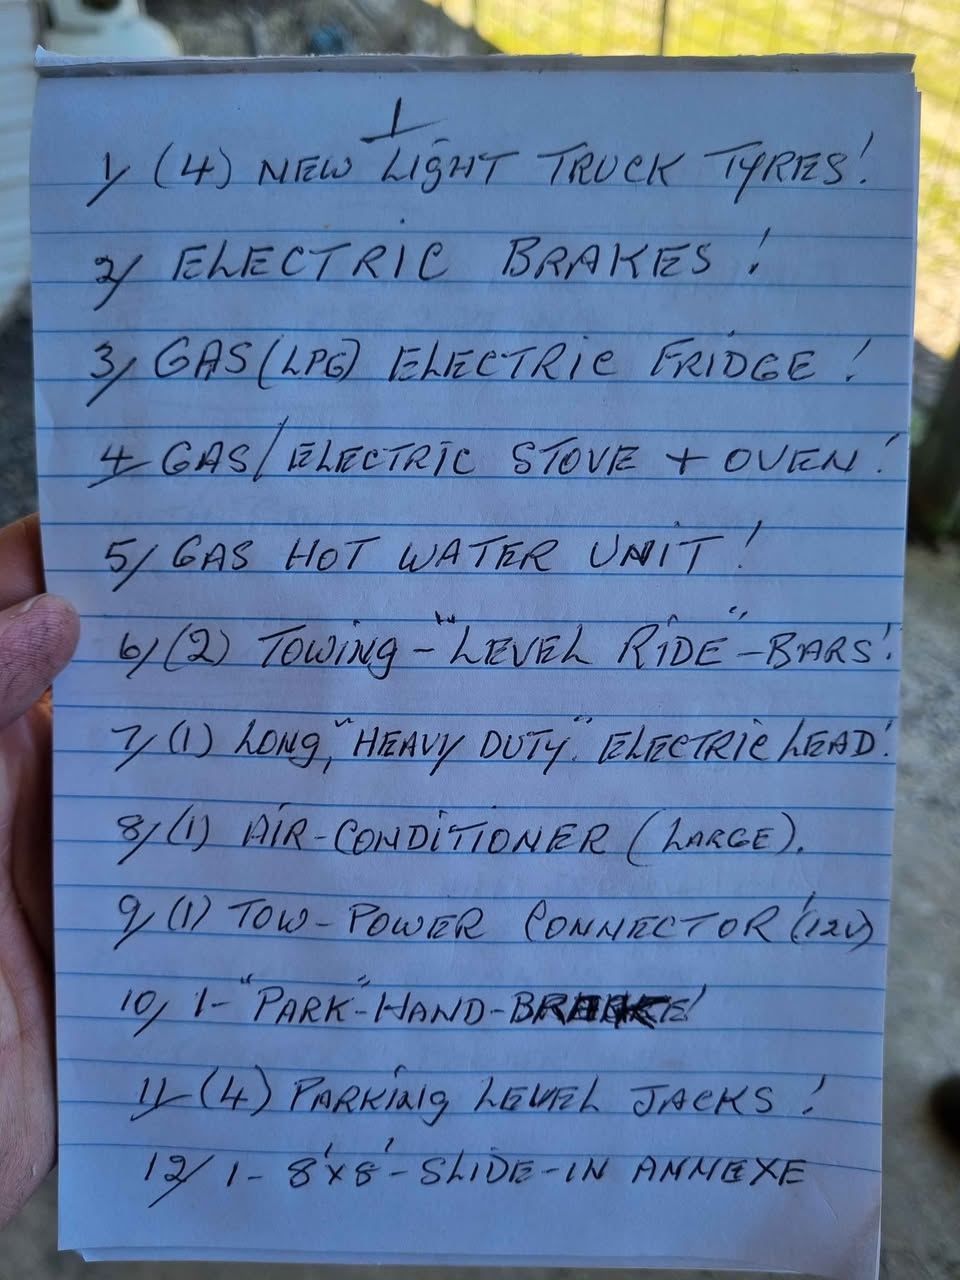 1
1/ (4) NEW LIGHT TRUCK TYRES!
2/ ELECTRIC BRAKES!
3/ GAS (LPG) ELECTRIC FRIDGE!
4/ GAS/ELECTRIC STOVE + OVEN!
5/ GAS HOT WATER UNIT!
6/ (2) TOWING - "LEVEL RIDE" - BARS!
7/ (1) LONG, "HEAVY DUTY". ELECTRIC LEAD!
8/ (1) AIR-CONDITIONER (LARGE).
9/ (1) TOW-POWER CONNECTOR! (12V)
10/ 1- "PARK"-HAND-BRAKE!
11/ (4) PARKING LEVEL JACKS!
12/ 1- 8'x8'-SLIDE-IN ANNEXE